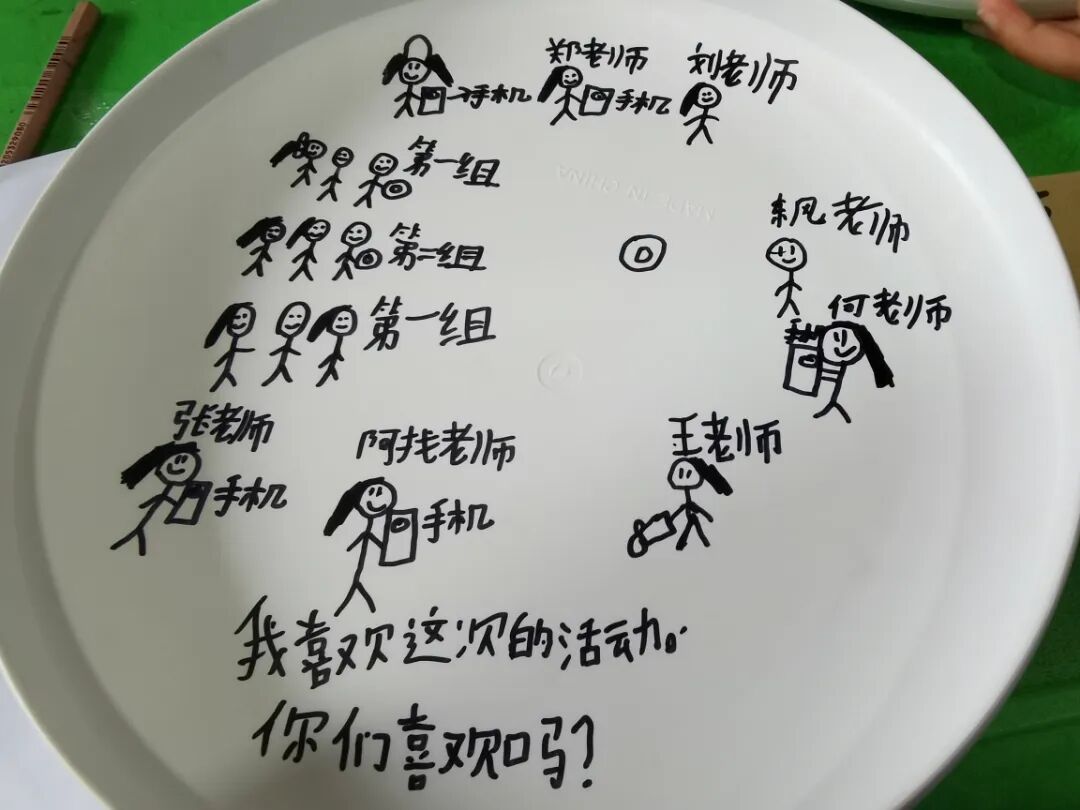 郑老师
刘老师
手机
手机
第一组
MADE IN CHINA
老师
第二组
何老师
第一组
手机
张老师
王老师
阿找老师
手机
手机
我喜欢这次的活动。
你们喜欢吗?